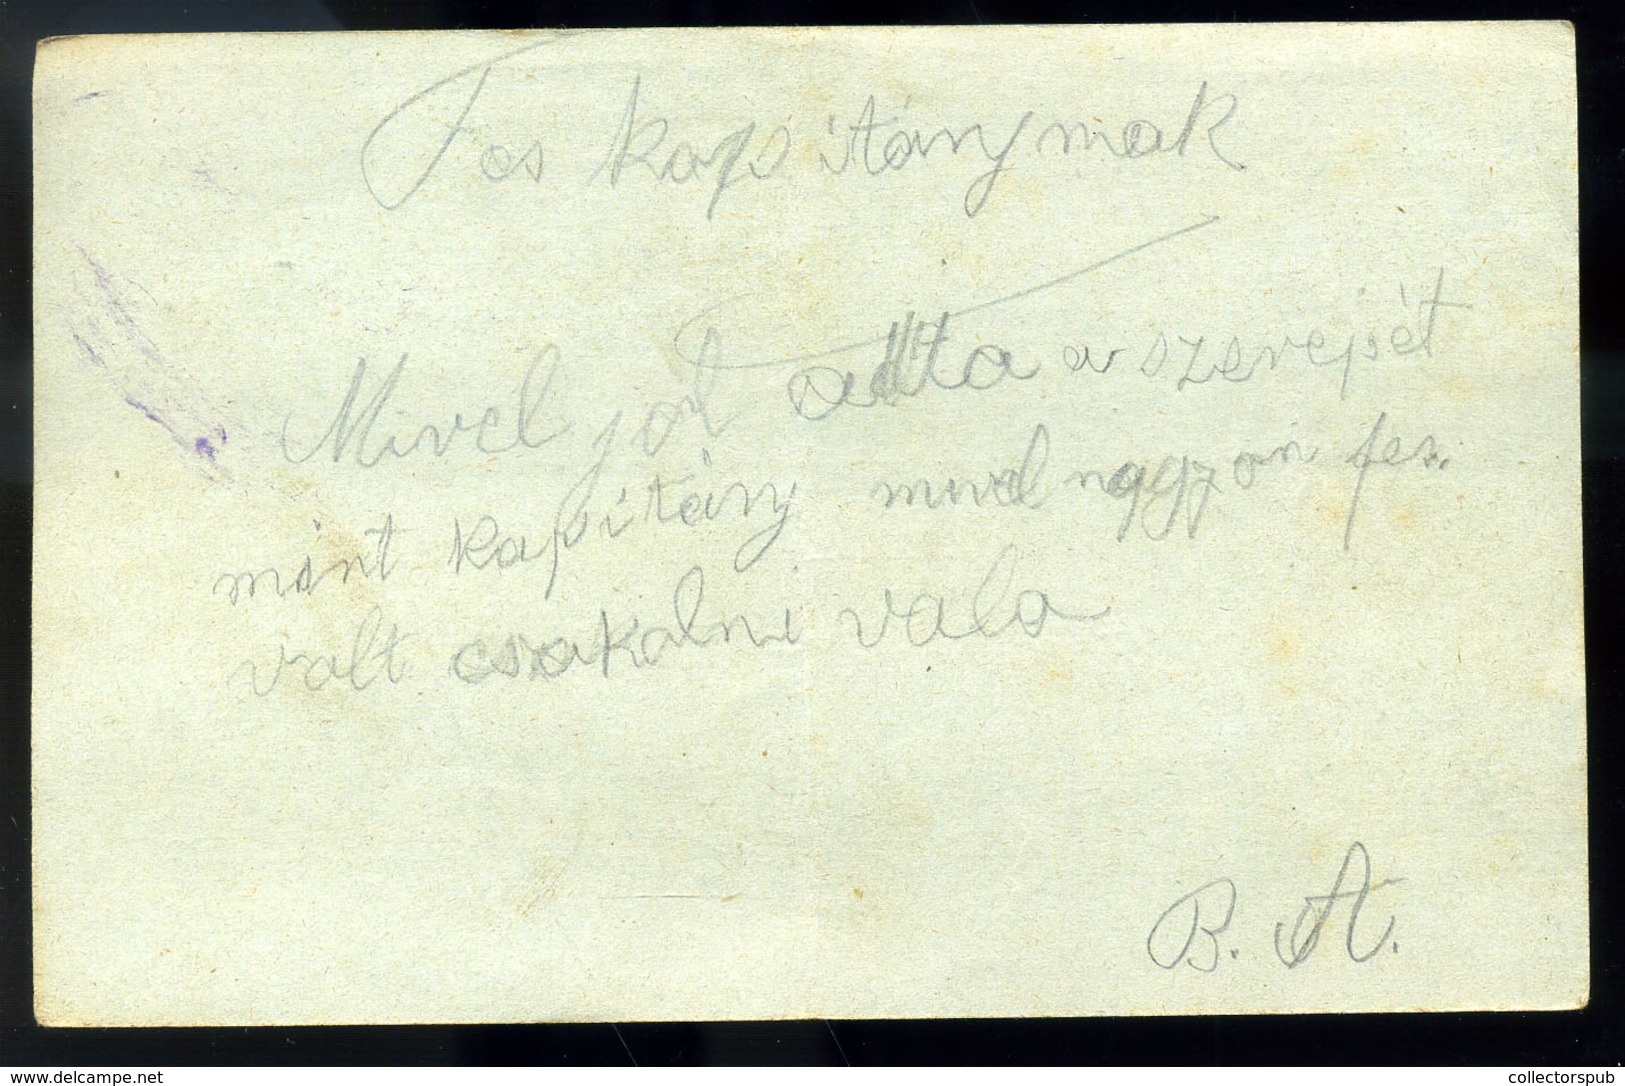 Fes kapitánynak
Mivel jol adta a szerepét
mint kapitány mivel nagyon fes.
valt csakalni vala
B. A.
www.delcampe.net
collectorspub